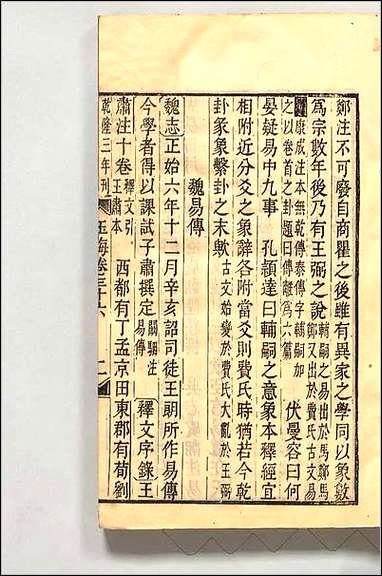 鄭注不可廢自商瞿之後雖有異家之學同以象數
爲宗數年後乃有王弼之說鄭又出於費氏古文易輔嗣之易出於馬鄭馬
康成注本無乾傳泰傳字輔嗣加之以卷首之卦題曰傳離爲六篇 伏曼容曰何
晏疑易中九事 孔穎達曰輔嗣之意象本釋經宜
相附近分爻之象辭各附當爻則費氏時猶若今乾
卦彖象繫卦之末歟古文始變於費氏大亂於王弼
魏易傳
魏志正始六年十二月辛亥詔司徒王朗所作易傳
今學者得以課試子肅撰定易傳闞駰注 釋文序錄王
肅注十卷釋文引王肅本 西都有丁孟京田東郡有荀劉
乾隆三年刊 玉海卷三十六 二